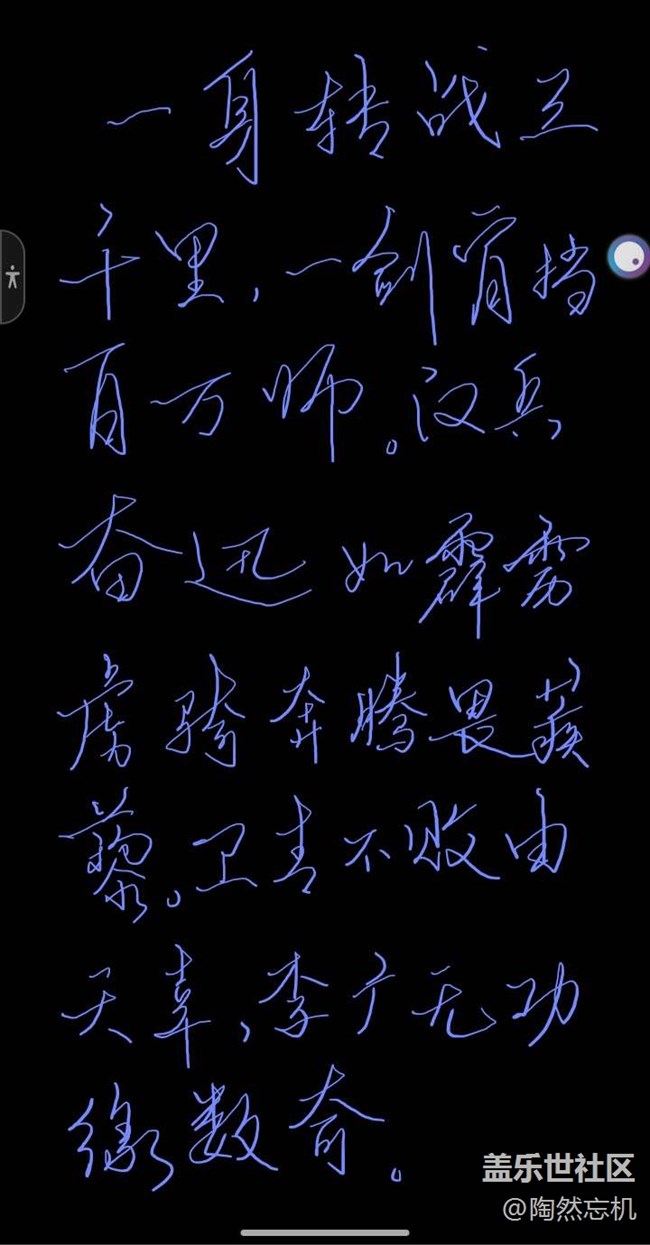 一身转战三
千里，一剑曾挡
百万师。汉兵
奋迅如霹雳
虏骑奔腾畏蒺
藜。卫青不败由
天幸，李广无功
缘数奇。
盖乐世社区
@陶然忘机